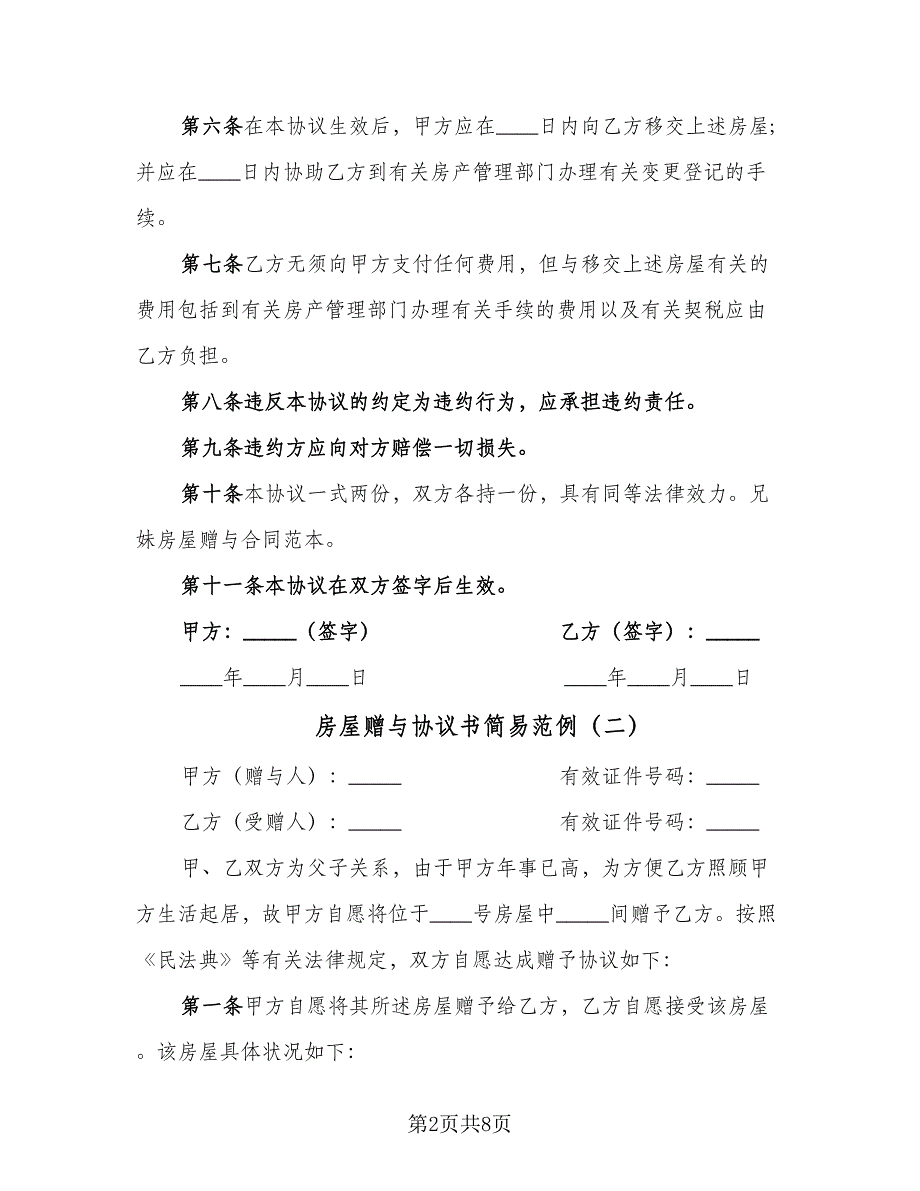 第六条在本协议生效后，甲方应在____日内向乙方移交上述房屋;
并应在____日内协助乙方到有关房产管理部门办理有关变更登记的手
续。
第七条乙方无须向甲方支付任何费用，但与移交上述房屋有关的
费用包括到有关房产管理部门办理有关手续的费用以及有关契税应由
乙方负担。
第八条违反本协议的约定为违约行为，应承担违约责任。
第九条违约方应向对方赔偿一切损失。
第十条本协议一式两份，双方各持一份，具有同等法律效力。兄
妹房屋赠与合同范本。
第十一条本协议在双方签字后生效。
甲方：_____（签字） 乙方（签字）：_____
____年____月____日 ____年____月____日
房屋赠与协议书简易范例（二）
甲方（赠与人）：_____ 有效证件号码：_____
乙方（受赠人）：_____ 有效证件号码：_____
甲、乙双方为父子关系，由于甲方年事已高，为方便乙方照顾甲
方生活起居，故甲方自愿将位于____号房屋中_____间赠予乙方。按照
《民法典》等有关法律规定，双方自愿达成赠予协议如下：
第一条甲方自愿将其所述房屋赠予给乙方，乙方自愿接受该房屋
。该房屋具体状况如下：
第2页共8页